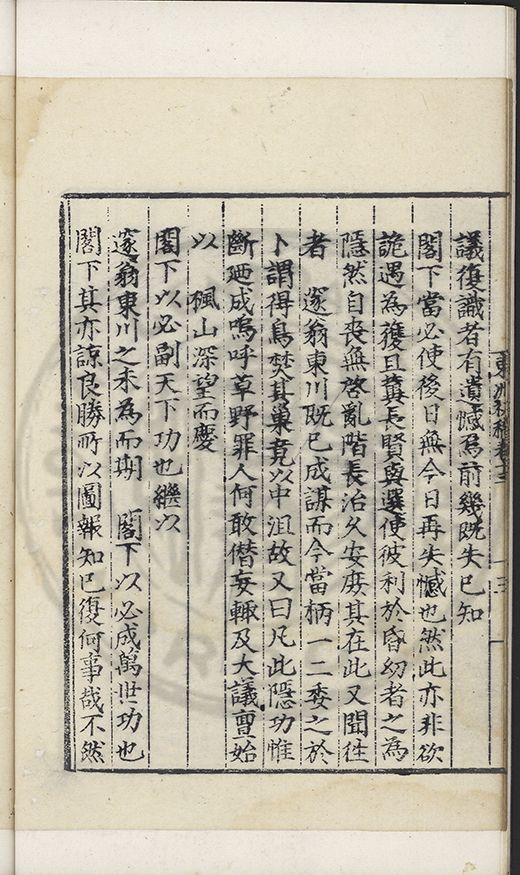 東洲初稿卷十三
十三
議復識者有遺憾為前幾既失已知
閣下當必使後日無今日再失憾也然此亦非欲
詭遇為獲且冀長賢與選使彼利於昏幼者之為
隱然自喪無啓亂階長治久安庶其在此又聞往
者 邃翁東川既已成謀而今當柄一二委之於
卜謂得鳥焚其巢竟以中沮故又曰凡此隱功惟
斷廼成嗚呼草野罪人何敢僭妄輙及大議亶始
以 楓山深望而慶
閣下以必副天下功也繼以
邃翁東川之未為而期 閣下以必成萬世功也
閣下其亦諒良勝所以圖報知已復何事哉不然